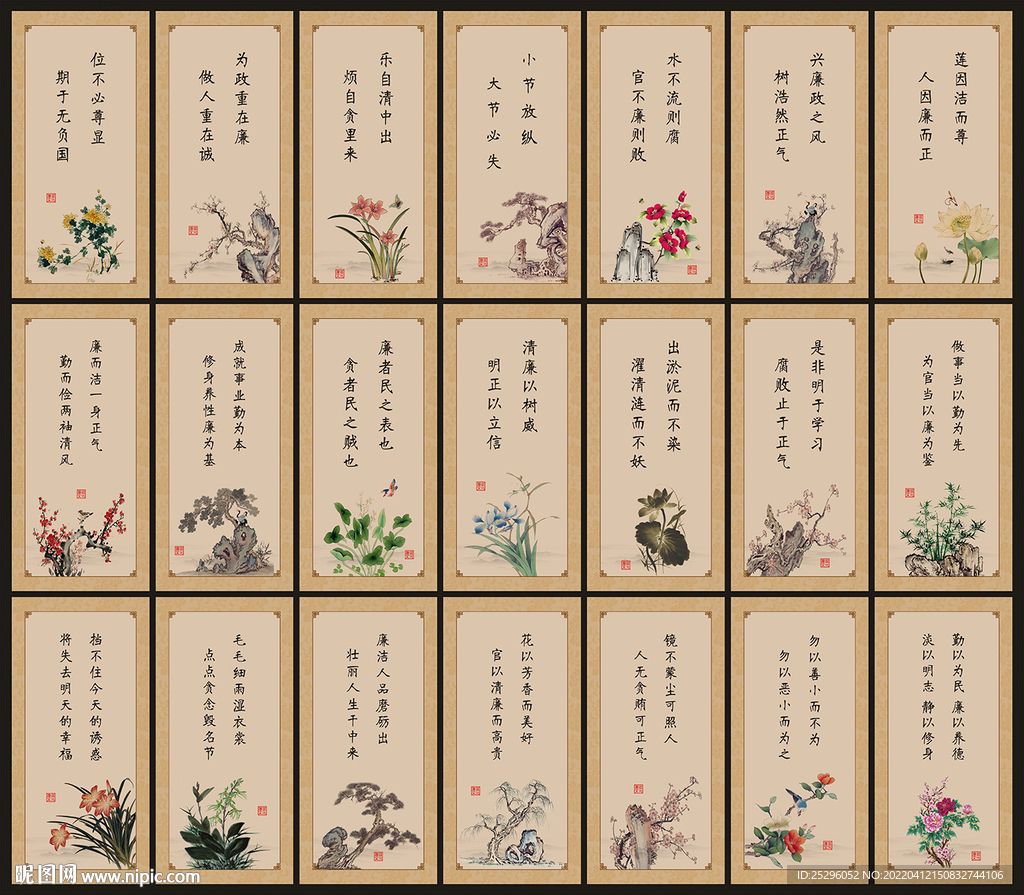 位不必尊显
期于无负国
为政重在廉
做人重在诚
乐自清中出
烦自贪里来
小节放纵
大节必失
水不流则腐
官不廉则败
兴廉政之风
树浩然正气
莲因洁而尊
人因廉而正
廉而洁一身正气
勤而俭两袖清风
成就事业勤为本
修身养性廉为基
廉者民之表也
贪者民之贼也
清廉以树威
明正以立信
出淤泥而不染
濯清涟而不妖
是非明于学习
腐败止于正气
做事当以勤为先
为官当以廉为鉴
挡不住今天的诱惑
将失去明天的幸福
毛毛细雨湿衣裳
点点贪念毁名节
廉洁人品磨砺出
壮丽人生干中来
花以芳香而美好
官以清廉而高贵
镜不蒙尘可照人
人无贪贿可正气
勿以善小而不为
勿以恶小而为之
勤以为民 廉以养德
淡以明志 静以修身
昵图网 www.nipic.com
ID:25296052 NO:20220412150832744106